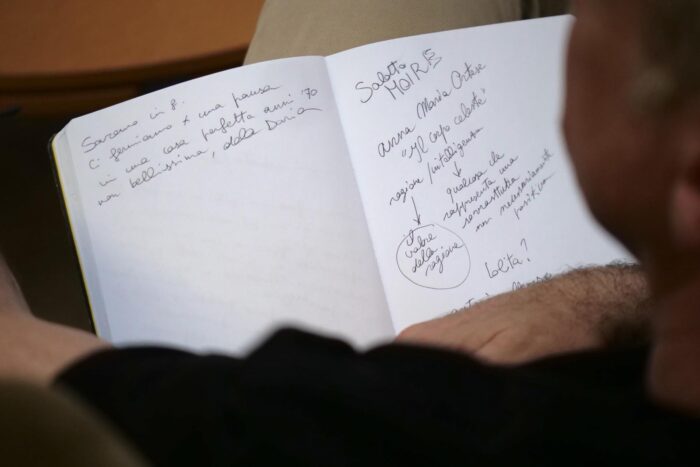 Saremo in 8.
Ci fermiamo x una pausa
in una casa perfetta anni '70
non bellissima, della Daria
Salotto
MOIRE
Anna Maria Ortese
"Il corpo celeste"
ragione/intelligenza
qualcosa che
rappresenta una
sovrastruttura
non necessariamente
positiva
il
valore
della
ragione
Lolita?